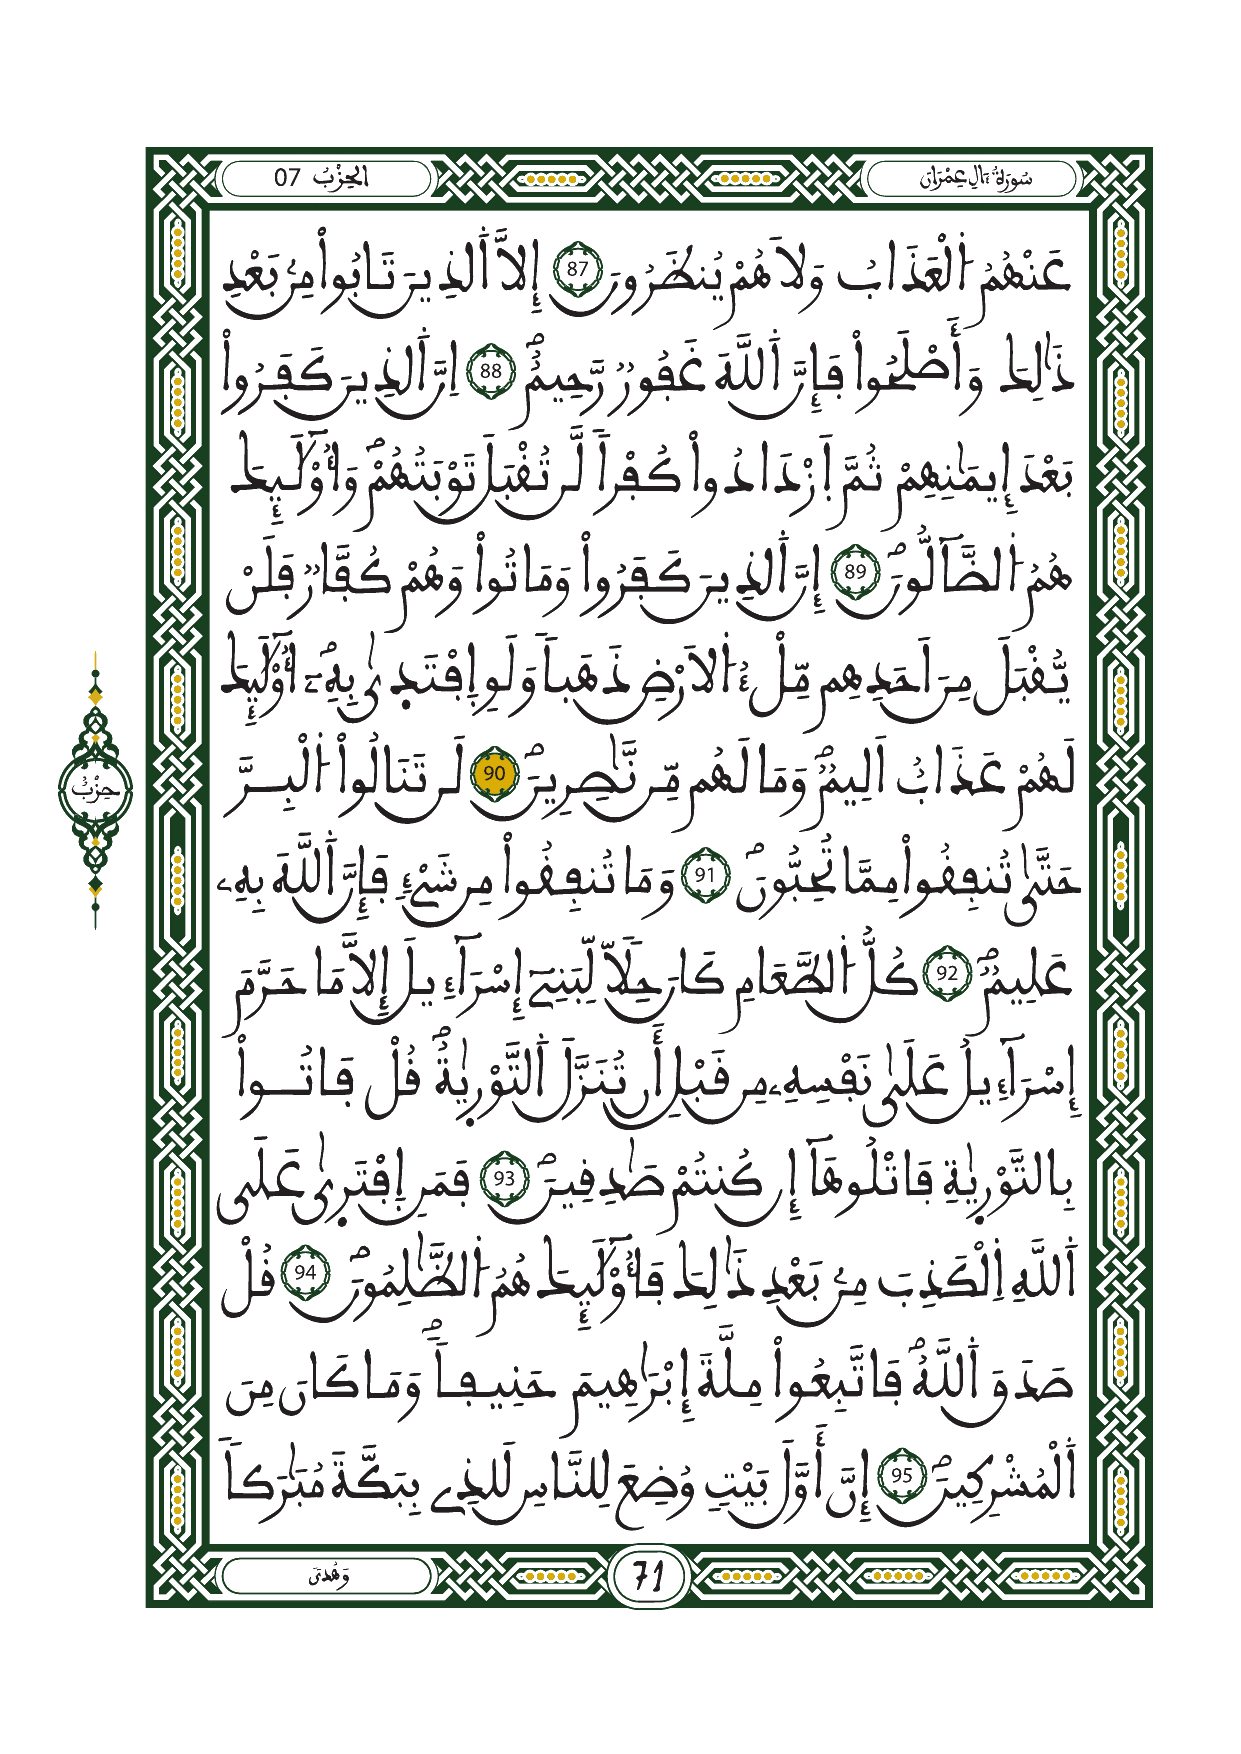 سُورَةُ ءَالِ عِمْرَانَ
الحِزْبُ 07
عَنْهُمُ اُ۬لْعَذَابُ وَلَا هُمْ يُنظَرُونَ 87 إِلَّا اَ۬لذِينَ تَابُواْ مِنۢ بَعْدِ
ذَٰلِكَ وَأَصْلَحُواْ فَإِنَّ اَ۬للَّهَ غَفُورٞ رَّحِيمٌۖ 88 اِنَّ اَ۬لذِينَ كَفَرُواْ
بَعْدَ إِيمَٰنِهِمْ ثُمَّ اَ۪زْدَادُواْ كُفْراٗ لَّن تُقْبَلَ تَوْبَتُهُمْۖ وَأُوْلَٰٓئِكَ
هُمُ اُ۬لضَّآلُّونَۖ 89 إِنَّ اَ۬لذِينَ كَفَرُواْ وَمَاتُواْ وَهُمْ كُفَّارٞ فَلَنْ
يُّقْبَلَ مِنَ اَحَدِهِم مِّلْءُ اُ۬لَارْضِ ذَهَباٗ وَلَوِ اِ۪فْتَد۪ىٰ بِهِۦٓۖ أُوْلَٰٓئِكَ
لَهُمْ عَذَابٌ اَلِيمٞۖ وَمَا لَهُم مِّن نَّٰصِرِينَۖ 90 لَن تَنَالُواْ اُ۬لْبِرَّ
حَتَّىٰ تُنفِقُواْ مِمَّا تُحِبُّونَۖ 91 وَمَا تُنفِقُواْ مِن شَےْءٖ فَإِنَّ اَ۬للَّهَ بِهِۦ
عَلِيمٞۖ 92 كُلُّ اُ۬لطَّعَامِ كَانَ حِلّاٗ لِّبَنِےٓ إِسْرَآءِيلَ إِلَّا مَا حَرَّمَ
إِسْرَآءِيلُ عَلَىٰ نَفْسِهِۦ مِن قَبْلِ أَن تُنَزَّلَ اَ۬لتَّوْر۪ىٰةُۖ قُلْ فَاتُواْ
بِالتَّوْر۪ىٰةِ فَاتْلُوهَآ إِن كُنتُمْ صَٰدِقِينَۖ 93 فَمَنِ اِ۪فْتَر۪ىٰ عَلَى
اَ۬للَّهِ اِ۬لْكَذِبَ مِنۢ بَعْدِ ذَٰلِكَ فَأُوْلَٰٓئِكَ هُمُ اُ۬لظَّٰلِمُونَۖ 94 قُلْ
صَدَقَ اَ۬للَّهُۖ فَاتَّبِعُواْ مِلَّةَ إِبْرَٰهِيمَ حَنِيفاٗۖ وَمَا كَانَ مِنَ
اَ۬لْمُشْرِكِينَۖ 95 إِنَّ أَوَّلَ بَيْتٖ وُضِعَ لِلنَّاسِ لَلذِے بِبَكَّةَ مُبَٰرَكاٗ
حِزْبُ
وَهُدىٗ
71